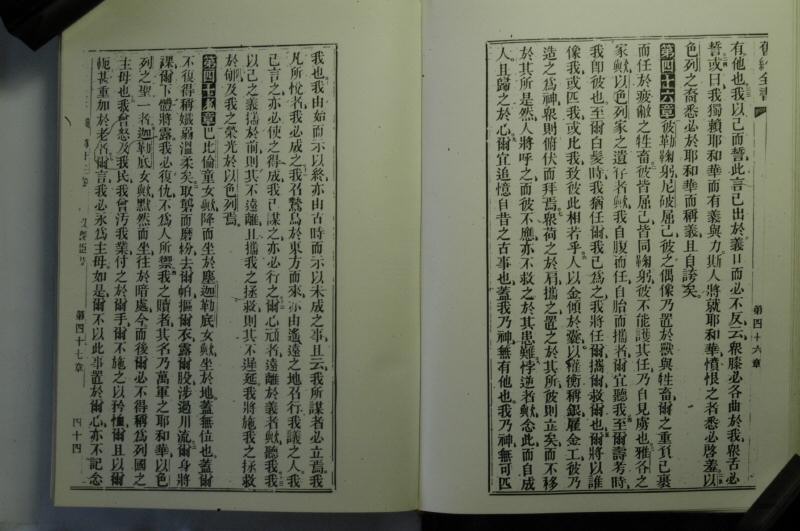 舊約全書
第四十六章
有他也我以己而誓此言已出於義口而必不反云衆膝必各曲於我衆舌必
誓或曰我獨賴耶和華而有義與力斯人將就耶和華憤恨之者悉必啓羞以
色列之裔悉必於耶和華而稱義且自誇矣
第四十六章彼勒鞠躬尼破屈己彼之偶像乃置於獸與牲畜爾之重負已裹
而任於疲敝之牲畜彼皆屈己皆同鞠躬彼不能護其任乃自見虜也雅各之
家歟以色列家之遺存者歟我自腹而任自胎而攜者爾宜聽我至爾壽考時
我卽彼也至爾白髮時我猶任爾我已爲之我將任爾攜爾救爾也爾將以誰
像我或匹我或比我致彼此相若乎人以金傾於囊以權衡稱銀雇金工彼乃
造之爲神衆則俯伏而拜焉衆荷之於肩攜之置之於其所彼則立矣而不移
於其所是然人將呼之而彼不應亦不救之於其患難悖逆者歟念此而自成
人且歸之於心爾宜追憶自昔之古事也蓋我乃神無有他也我乃神無可匹
我也我由始而示以終亦由古時而示以未成之事且云我所謀者必立焉我
凡所悅者我必成之我召鷙鳥於東方而來亦由遙遠之地召行我議之人我
已言之亦必使之得成我已謀之亦必行之爾心頑者遠離於義者歟聽我我
以己之義攜於前則其不遠離且攜我之拯救則其不遲延我將施我之拯救
於郇及我之榮光於以色列焉
第四十七章巴比倫童女歟降而坐於塵迦勒底女歟坐於地蓋無位也蓋爾
不復得稱嬌弱溫柔矣取磐而磨粉去爾帕摳爾衣露爾股涉過川流爾身將
課爾下體將露我必復仇不爲人所禦我之贖者其名乃萬軍之耶和華以色
列之聖一者迦勒底女歟默然而坐往於暗處今而後爾必不得稱爲列國之
主母也我曾怒及我民我曾汚我業付之於爾手爾不施之以矜恤爾且以爾
軛甚重加於老者爾言我必永爲主母如是爾不以此事置於爾心亦不記念
第四十七章
四十四